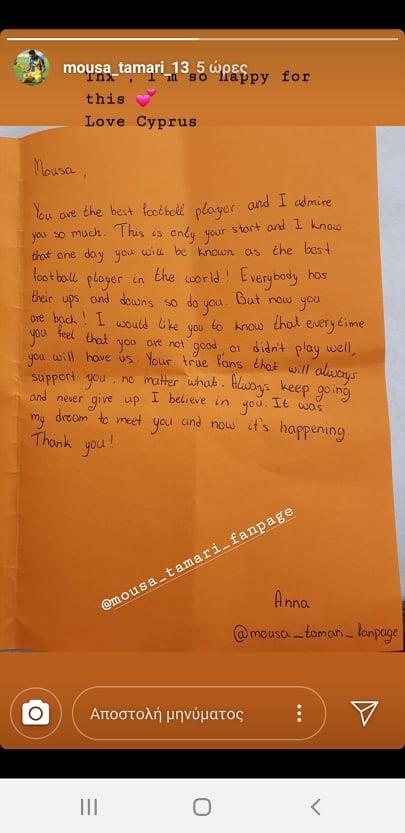 mousa_tamari_13 5 ώρες
Thx , I'm so happy for
this 💕
Love Cyprus
Mousa,
You are the best football player and I admire
you so much. This is only your start and I know
that one day you will be known as the best
football player in the world! Everybody has
their ups and downs so do you. But now you
are back! I would like you to know that everytime
you feel that you are not good, or didn't play well,
you will have us. Your true fans that will always
support you, no matter what. Always keep going
and never give up I believe in you. It was
my dream to meet you and now it's happening.
Thank you!
@mousa_tamari_fanpage
Anna
@mousa_tamari_fanpage
Αποστολή μηνύματος